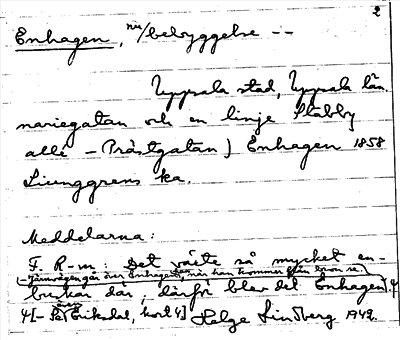 2
Enhagen, nu/bebyggelse --
Uppsala stad, Uppsala län.
nariegatan och en linje Stabby
allé - Prästgatan) Enhagen 1858
Ljunggrens ka.
Meddelarna:
F. R-m: Det växte så mycket en-
(- Järnvägen går över Enhagen, när han kommer från
buskar där, därför blev det Enhagen).4
4[- Se Eriksdal, kort 4] Helge Lindberg 1942.